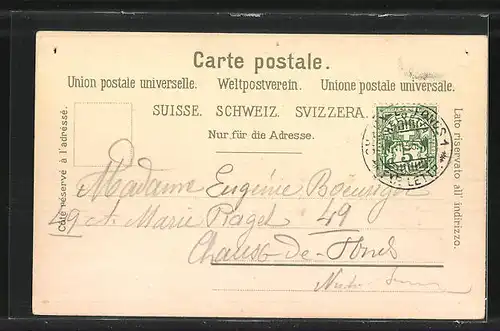 Carte postale.
Union postale universelle. Weltpostverein. Unione postale universale.
SUISSE. SCHWEIZ. SVIZZERA.
Nur für die Adresse.
Côté réservé à l'adresse.
Lato riservato all' indirizzo.
5
Madame Eugénie
49 Marie Nagel 49
Chaux-de-Fonds